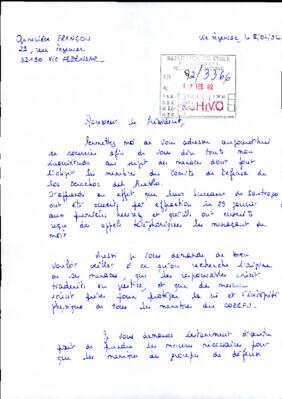 Geneviève FRANÇOIS
22, rue Lagenas
32190 VIC FEZENSAC
Vic Fezensac, le 8/02/92
REPUBLICA DE CHILE
92/3366
17 FEB 92
ARCHIVO
Monsieur le Président
Permettez moi de vous adresser aujourd'hui
ce courrier afin de vous dire toute mon
inquiétude au sujet des menaces dont font
l'objet les membres du Comité de Défense de
los Derechos del Pueblo.
J'apprends en effet que leurs bureaux de Santiago
ont été ouverts par effraction le 29 janvier
aux premières heures, et qu'ils ont ensuite
reçu des appels téléphoniques les menaçant de
mort.
Aussi je vous demande de bien
vouloir veiller à ce qu'on recherche l'origine
de ces menaces, que les responsables soient
traduits en justice, et que des mesures
soient prises pour protéger la vie et l'intégrité
physique de tous les membres du CODEPU.
Je vous demande instamment d'autre
part de prendre les mesures nécessaires pour
que les membres de groupes de défense